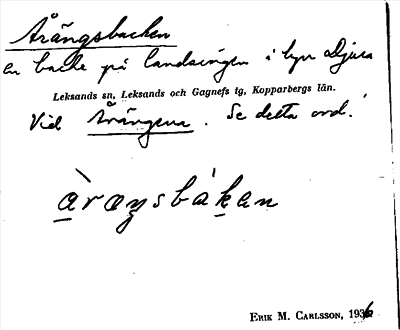 Årängsbacken
en backe på landsvägen i byn Djura
Leksands sn, Leksands och Gagnefs tg, Kopparbergs län.
Vid Årängena. Se detta ord.
àraŋsbákan
ERIK M. CARLSSON, 1936